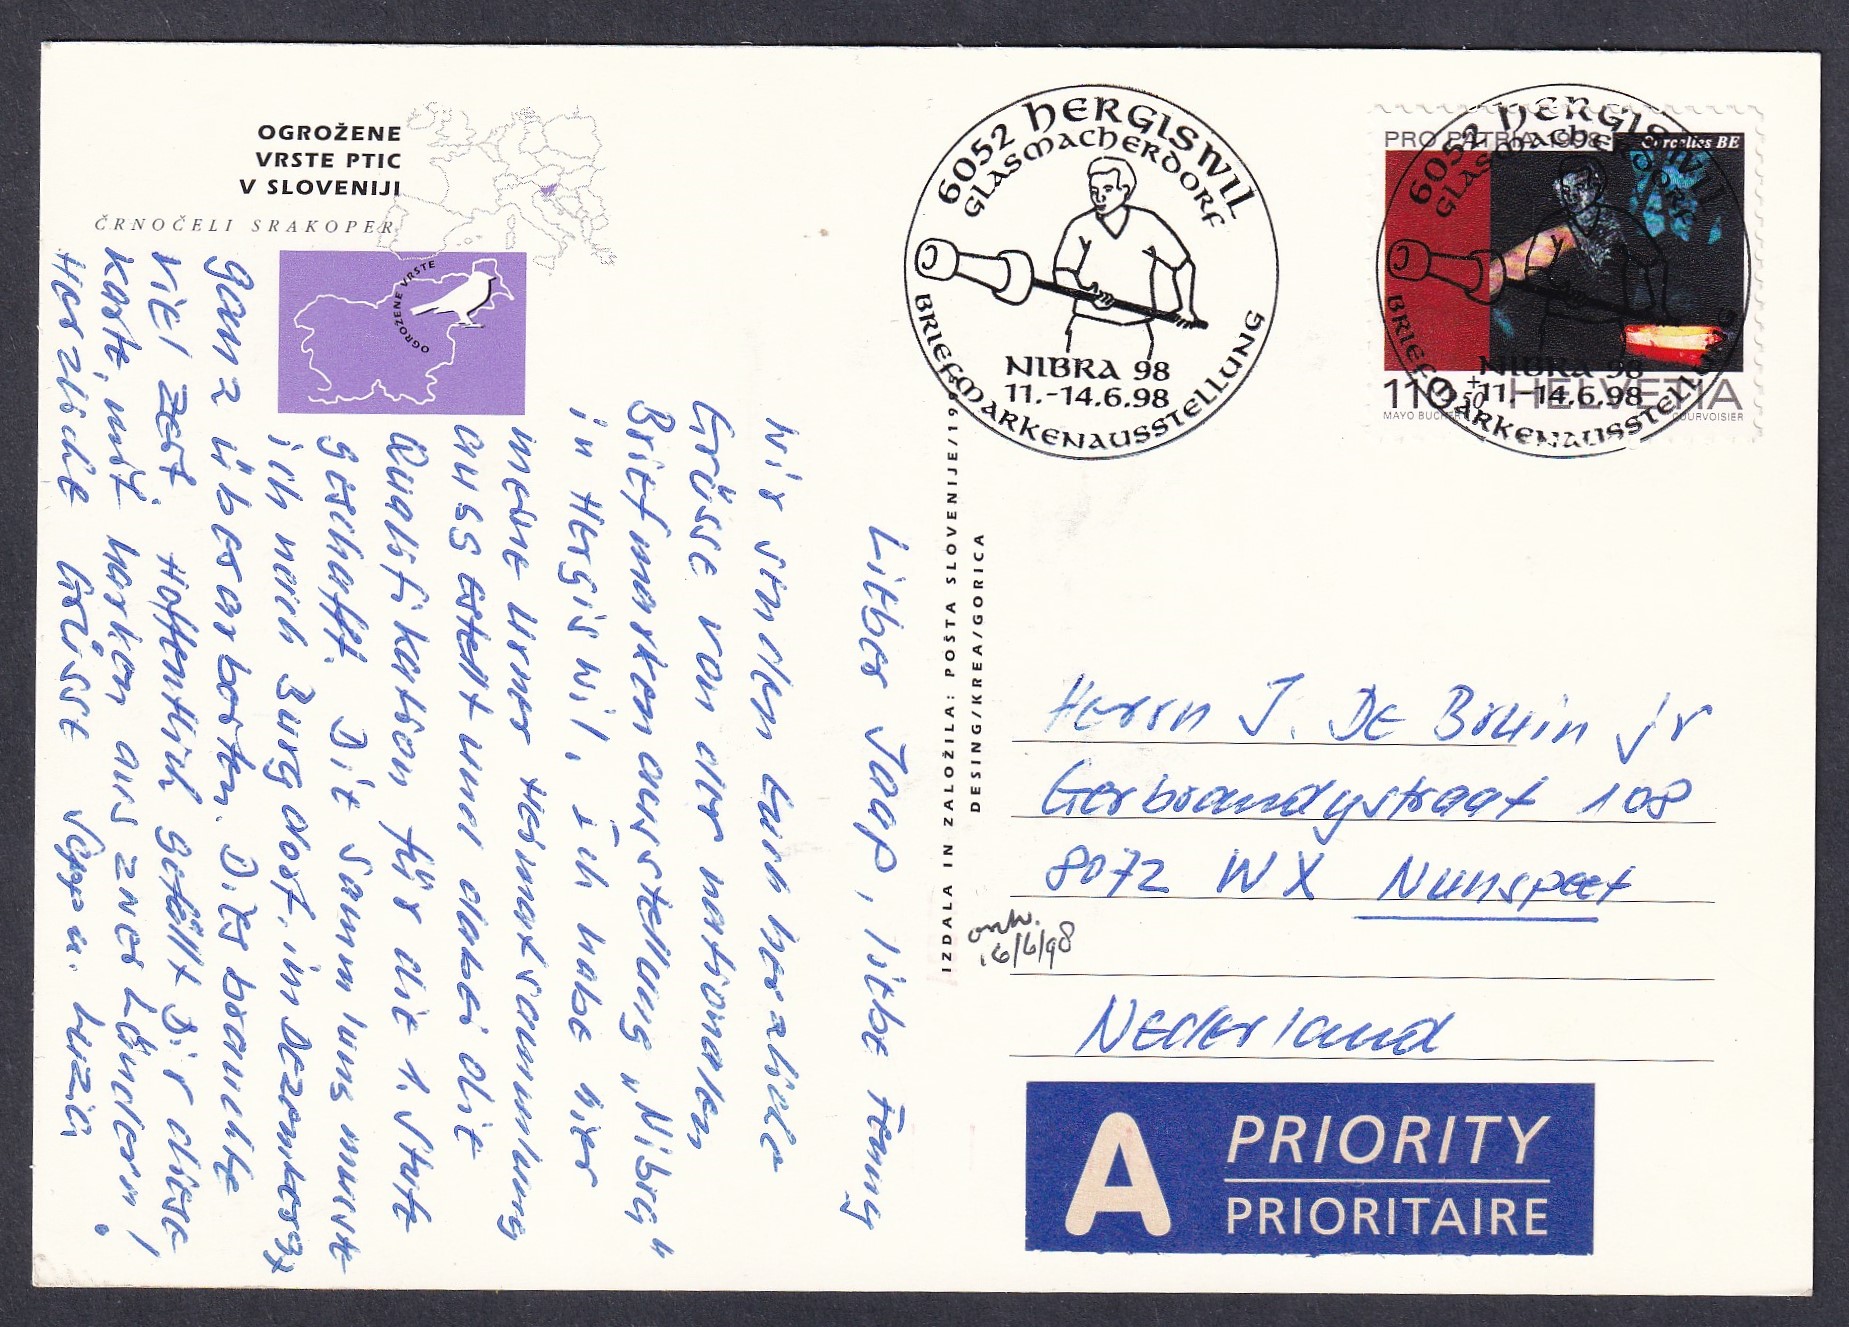 OGROŽENE
VRSTE PTIC
V SLOVENIJI
ČRNOČELI SRAKOPER
OGROŽENE VRSTE
Lieber Jaap, liebe Fenny
Wir senden Euch herzliche
Grüsse von der nationalen
Briefmarkenausstellung „Nibra"
in Hergiswil. Ich habe hier
meine Urner Heimatsammlung
ausgestellt und dabei die
Qualifikation für die 1. Stufe
geschafft. Die Sammlung musste
ich nach Burgdorf, im Dezember 97
ganz überarbeiten. Dies brauchte
viel Zeit. Hoffentlich gefällt Dir diese
Karte, mit Marken aus zwei Ländern!
Herzliche Grüsse Sepp u. Luzia
IZDALA IN ZALOŽILA: POŠTA SLOVENIJE/199
DESING/KREA/GORICA
6052 HERGISWIL
GLASMACHERDORF
NIBRA 98
11.-14.6.98
BRIEFMARKENAUSSTELLUNG
PRO PATRIA 1998
Corcelles BE
6052 HERGISWIL
GLASMACHERDORF
NIBRA 98
11.-14.6.98
BRIEFMARKENAUSSTELLUNG
110 + 50 HELVETIA
MAYO BUCHER
COURVOISIER
Herrn J. De Bruin jr
Gerbrandystraat 108
8072 WX Nunspeet
ontv.
16/6/98
Nederland
A PRIORITY
PRIORITAIRE